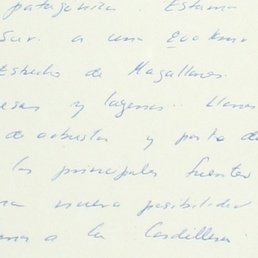 patagonica. Estamos
Sur. a una
Estrecho de Magallanes.
y lagunas.. Llanos
de arbustos y pasto de
las principales fuentes
nueva posibilidad
a la Cordillera.